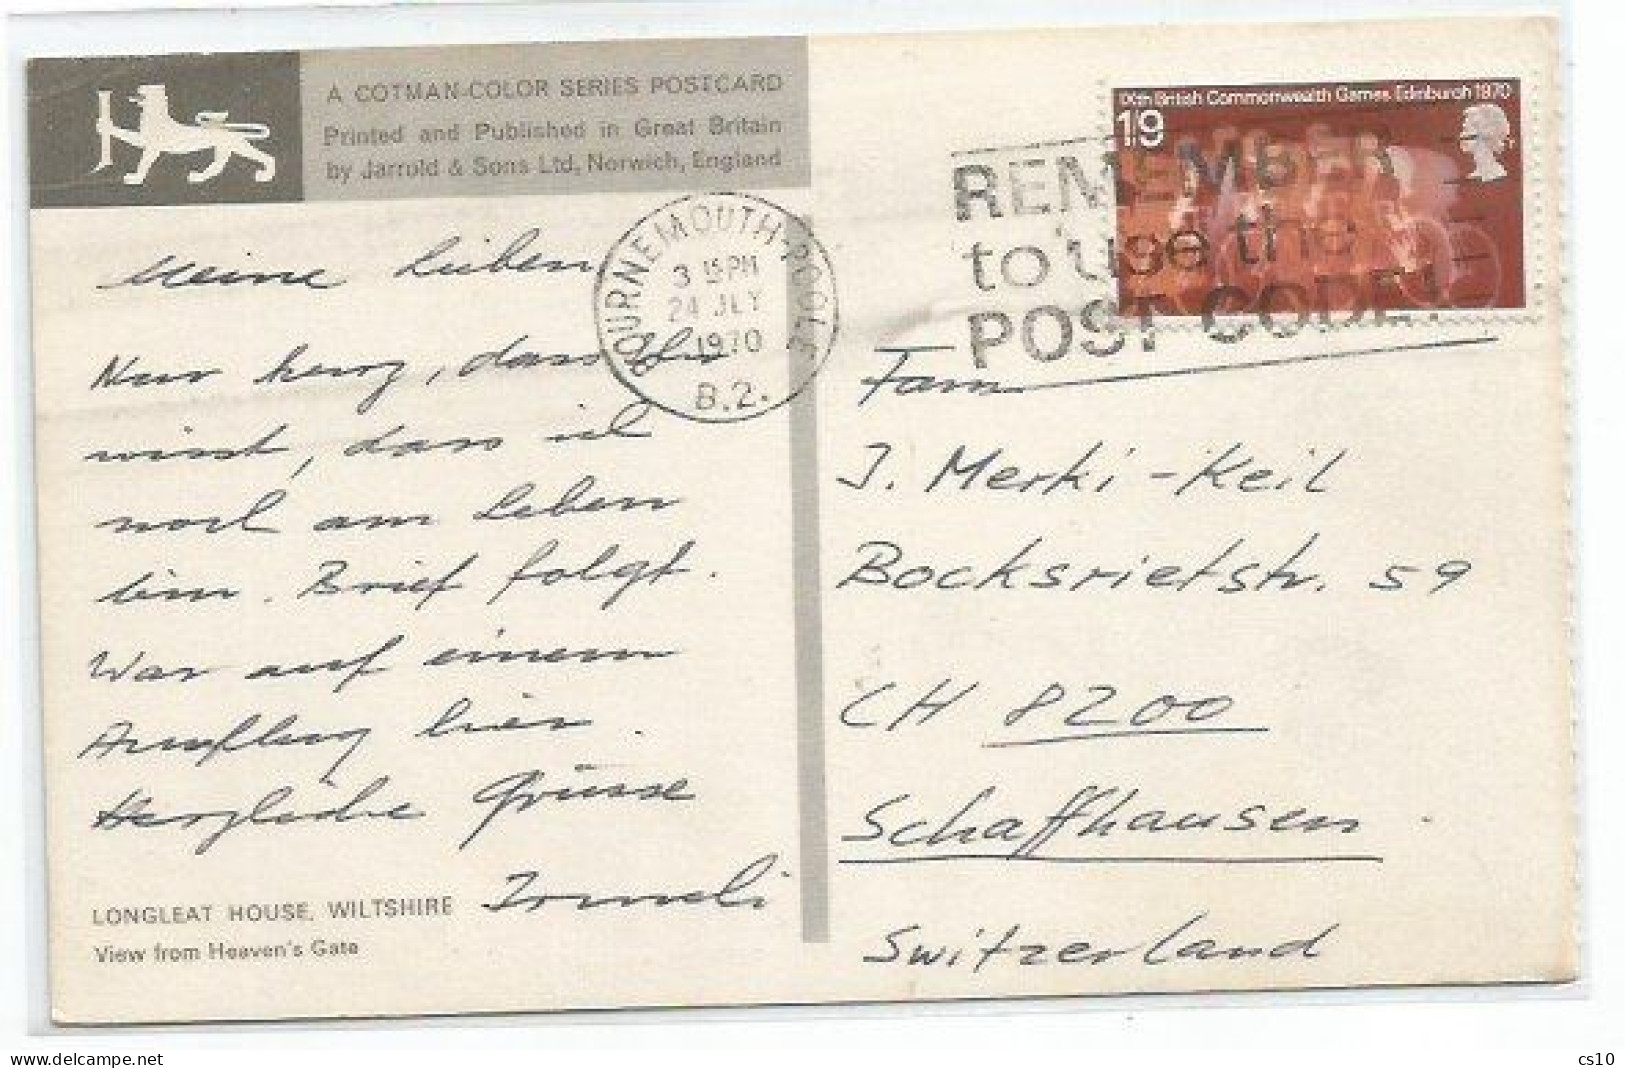 A COTMAN-COLOR SERIES POSTCARD
Printed and Published in Great Britain
by Jarrold & Sons Ltd, Norwich, England
IXth British Commonwealth Games Edinburgh 1970
1/9
REMEMBER
to use the
POST CODE!
BOURNEMOUTH-POOLE
3 15PM
24 JLY
1970
B.2.
Meine Lieben
Nur kurz, dass Ihr
wisst, dass ich
noch am Leben
bin. Brief folgt.
War auf einem
Ausflug hier.
Herzliche Grüsse
Irmeli
LONGLEAT HOUSE, WILTSHIRE
View from Heaven's Gate
Fam.
J. Merki-Keil
Bocksrietstr. 59
CH 8200
Schaffhausen
Switzerland
cs10